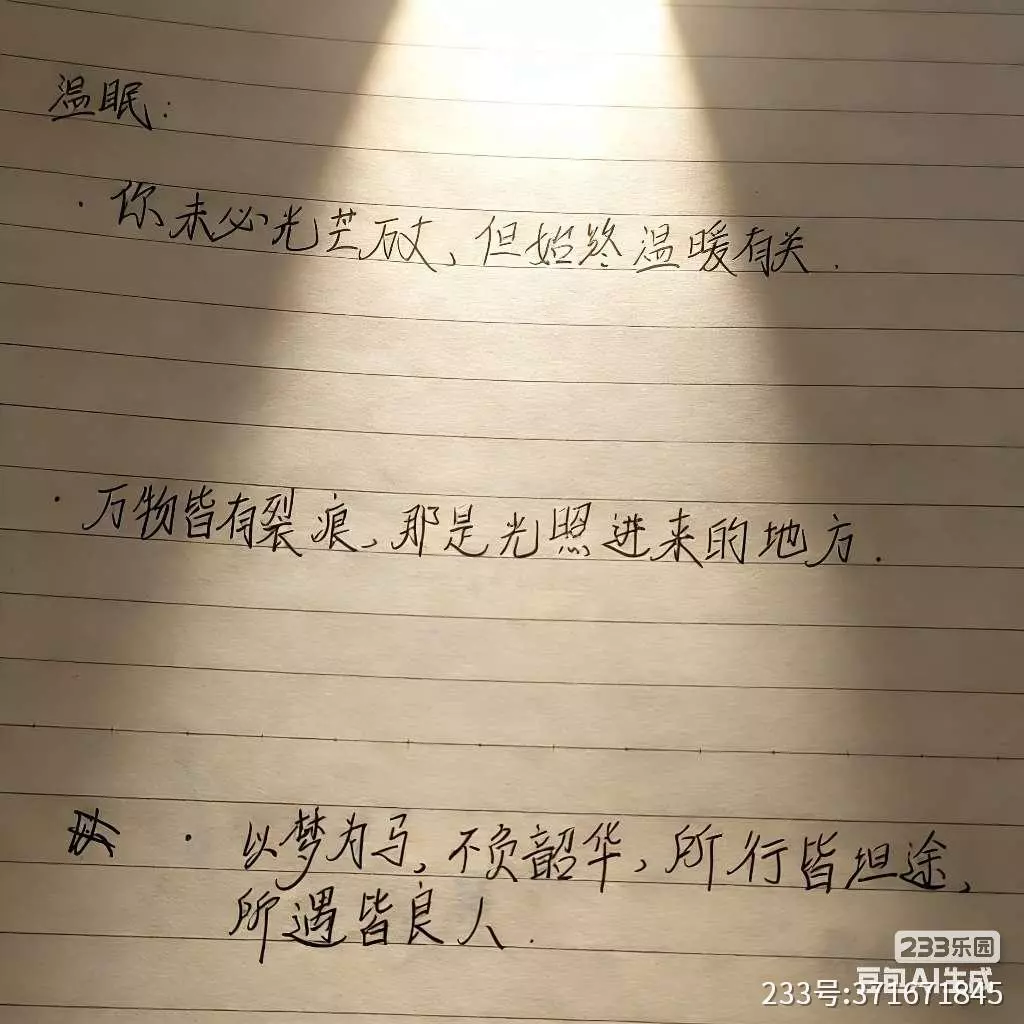 温眠：
·你未必光芒万丈，但始终温暖有关.
·万物皆有裂痕，那是光照进来的地方.
·以梦为马，不负韶华，所行皆坦途，
所遇皆良人.
233乐园
豆包AI生成
233号:371671845